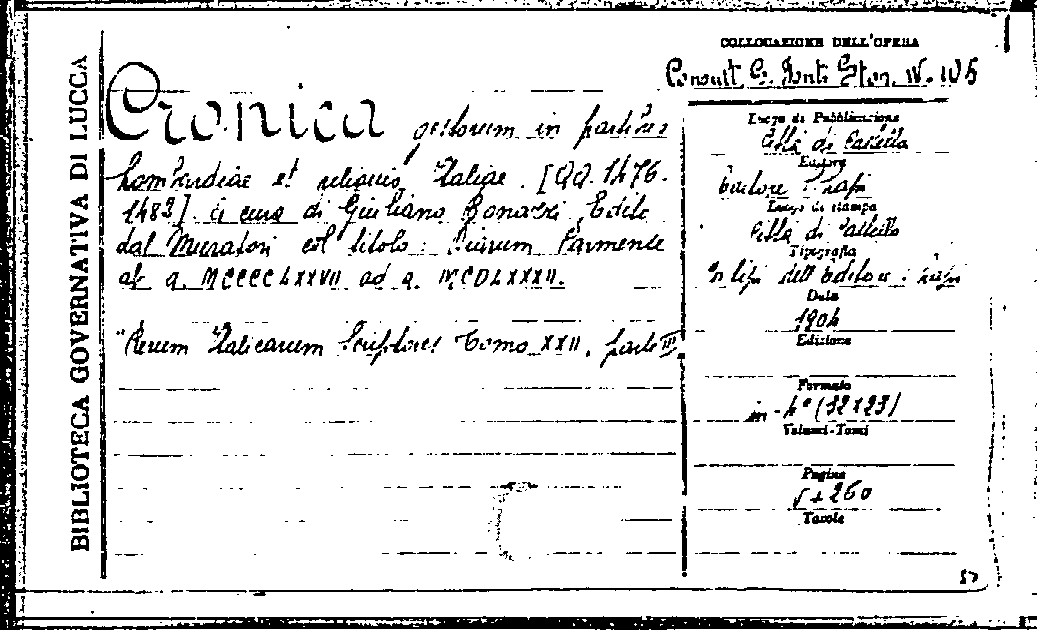 BIBLIOTECA GOVERNATIVA DI LUCCA
COLLOCAZIONE DELL'OPERA
Consult G. Fonti Stor. IV. 105
Cronica gestorum in partibus
Lombardiae et reliquis Italiae. [AA. 1476-
1482] A cura di Giuliano Bonazzi Edite
dal Muratori col titolo: Diarium Parmense
ab a. MCCCCLXXVII ad a. MCDLXXXII.
"Rerum Italicarum Scriptores Tomo XXII, parte III
Luogo di Pubblicazione
Città di Castello
Editore
Editore: Lapi
Luogo di stampa
Città di Castello
Tipografia
Co' tipi dell'Editore: Lapi
Data
1904
Edizione
Formato
in-4° (32x23)
Volumi-Tomi
Pagine
+ 260
Tavole